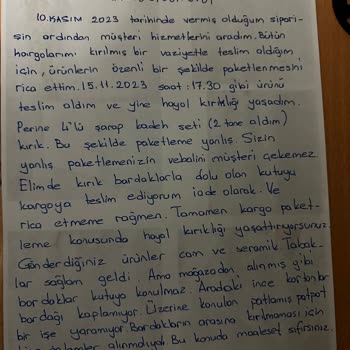 10.KASIM 2023 tarihinde vermiş olduğum sipari-
şin ardından müşteri hizmetlerini aradım. Bütün
kargolarımı kırılmış bir vaziyette teslim aldığım
için, ürünlerin özenli bir şekilde paketlenmesini
rica ettim. 15.11.2023 saat : 17.30 gibi ürünü
teslim aldım ve yine hayal kırıklığı yaşadım.
Perine 4'lü şarap kadeh seti (2 tane aldım)
kırık. Bu şekilde paketleme yanlış. Sizin
yanlış paketlemenizin vebalini müşteri çekemez.
Elimde kırık bardaklarla dolu olan kutuyu
kargoya teslim ediyorum iade olarak. Ve
rica etmeme rağmen. Tamamen kargo paket-
leme konusunda hayal kırıklığı yaşattırıyorsunuz.
Gönderdiğiniz ürünler cam ve seramik Tabak-
lar sağlam geldi. Ama mağazadan alınmış gibi
bardaklar kutuya konulmaz. Aradaki ince kartonlar
bardağı kaplamıyor. Üzerine konulan patlamış patpat
bir işe yaramıyor. Bardakların arasına kırılmaması için
alınmalıydı. Bu konuda maalesef sıfırsınız.